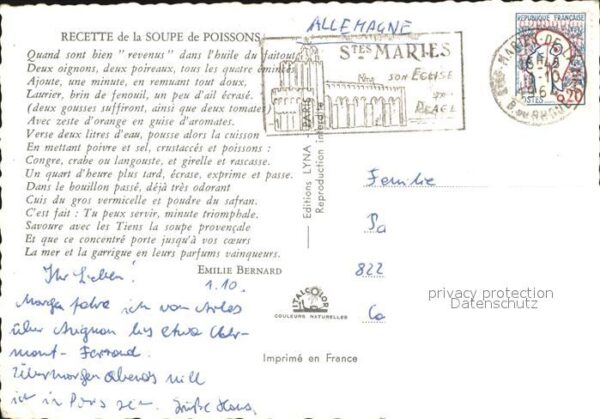 ALLEMAGNE
RECETTE de la SOUPE de POISSONS
Quand sont bien " revenus " dans l'huile du faitout
Deux oignons, deux poireaux, tous les quatre émincés
Ajoute, une minute, en remuant tout doux,
Laurier, brin de fenouil, un peu d'ail écrasé.
(deux gousses suffiront, ainsi que deux tomates)
Avec zeste d'orange en guise d'aromates.
Verse deux litres d'eau, pousse alors la cuisson
En mettant poivre et sel, crustacés et poissons :
Congre, crabe ou langouste, et girelle et rascasse.
Un quart d'heure plus tard, écrase, exprime et passe.
Dans le bouillon passé, déjà très odorant
Cuis du gros vermicelle et poudre du safran.
C'est fait : Tu peux servir, minute triomphale.
Savoure avec les Tiens la soupe provençale
Et que ce concentré porte jusqu'à vos cœurs
La mer et la garrigue en leurs parfums vainqueurs.
EMILIE BERNARD
STES MARIES
SON EGLISE
SA
PLAGE
REPUBLIQUE FRANÇAISE
POSTES
0,20
Editions LYNA - PARIS
Reproduction interdite
Ihr Lieben!
1.10.
Morgen fahre ich von Arles
über Avignon bis etwa Cler-
mont-Ferrand.
Übermorgen Abends will
ich in Paris sein.
Familie
Pa
822
Co
ITALCOLOR
COULEURS NATURELLES
Imprimé en France
privacy protection
Datenschutz